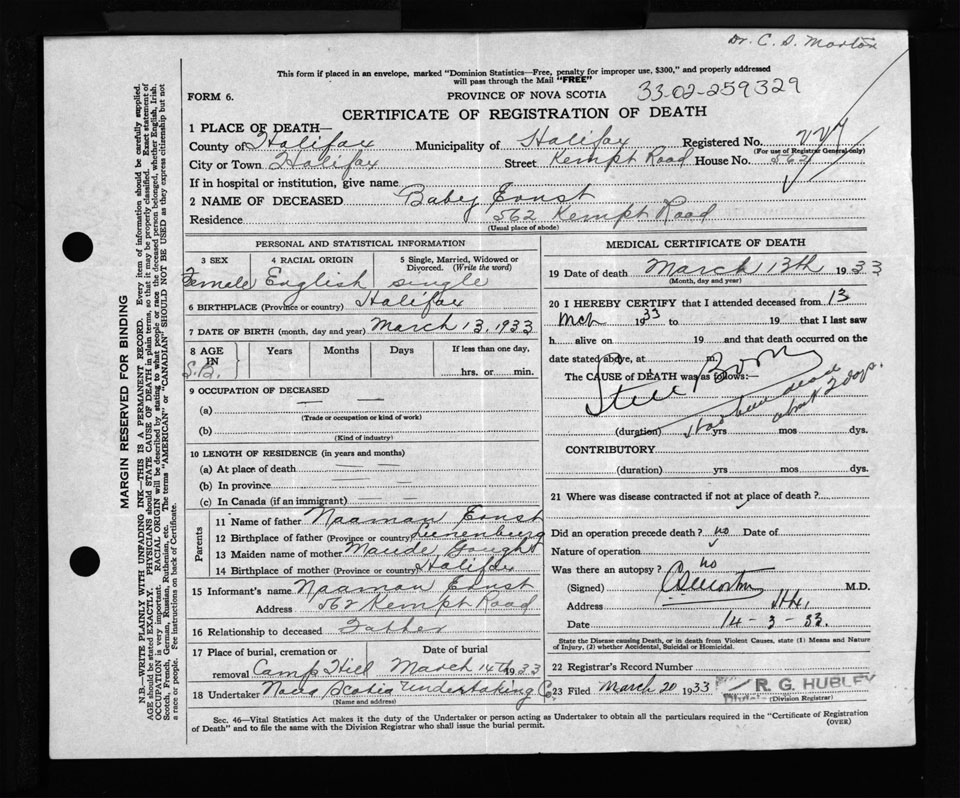 Dr. C. S. Morton
This form if placed in an envelope, marked "Dominion Statistics—Free, penalty for improper use, $300," and properly addressed
will pass through the Mail "FREE"
FORM 6. PROVINCE OF NOVA SCOTIA 33-02-259329
CERTIFICATE OF REGISTRATION OF DEATH
1 PLACE OF DEATH—
County of Halifax Municipality of Halifax Registered No.
(For use of Registrar General only)
City or Town Halifax Street Kempt Road House No. 562
If in hospital or institution, give name
2 NAME OF DECEASED Baby Ernst
Residence 562 Kempt Road
(Usual place of abode)
PERSONAL AND STATISTICAL INFORMATION
3 SEX 4 RACIAL ORIGIN 5 Single, Married, Widowed or Divorced. (Write the word)
Female English single
6 BIRTHPLACE (Province or country) Halifax
7 DATE OF BIRTH (month, day and year) March 13, 1933
8 AGE IN Years Months Days If less than one day,
S.B. hrs. or min.
9 OCCUPATION OF DECEASED
(a)
(Trade or occupation or kind of work)
(b)
(Kind of industry)
10 LENGTH OF RESIDENCE (in years and months)
(a) At place of death
(b) In province
(c) In Canada (if an immigrant)
Parents
11 Name of father Naaman Ernst
12 Birthplace of father (Province or country) Lunenburg
13 Maiden name of mother Maude Gought
14 Birthplace of mother (Province or country) Halifax
15 Informant's name Naaman Ernst
Address 562 Kempt Road
16 Relationship to deceased Father
17 Place of burial, cremation or Date of burial
removal Camp Hill March 14th 1933
18 Undertaker Nova Scotia Undertaking Co
(Name and address)
MEDICAL CERTIFICATE OF DEATH
19 Date of death March 13th 1933
(Month, day and year)
20 I HEREBY CERTIFY that I attended deceased from 13
Mch 1933 to 19 that I last saw
h alive on 19 and that death occurred on the
date stated above, at m.
The CAUSE of DEATH was as follows:—
Still Born
Has been dead
about 2 days.
(duration) yrs mos dys.
CONTRIBUTORY
(duration) yrs mos dys.
21 Where was disease contracted if not at place of death?
Did an operation precede death? no Date of
Nature of operation
Was there an autopsy? no
(Signed) C S Morton M.D.
Address Hfx.
Date 14-3-33.
State the Disease causing Death, or in death from Violent Causes, state (1) Means and Nature
of Injury, (2) whether Accidental, Suicidal or Homicidal.
22 Registrar's Record Number
23 Filed March 20 1933 R. G. HUBLEY
(Division Registrar)
Sec. 46—Vital Statistics Act makes it the duty of the Undertaker or person acting as Undertaker to obtain all the particulars required in the "Certificate of Registration
of Death" and to file the same with the Division Registrar who shall issue the burial permit.
(OVER)
MARGIN RESERVED FOR BINDING
N.B.—WRITE PLAINLY WITH UNFADING INK—THIS IS A PERMANENT RECORD. Every item of information should be carefully supplied.
AGE should be stated EXACTLY. PHYSICIANS should STATE CAUSE OF DEATH in plain terms, so that it may be properly classified. Exact statement of
OCCUPATION is very important. RACIAL ORIGIN will be described by stating to what people or race the deceased person belonged, whether English, Irish,
Scotch, French, German, Russian, Ruthenian, etc. The terms "AMERICAN" or "CANADIAN" SHOULD NOT BE USED as they express citizenship but not
a race or people. See instructions on back of Certificate.